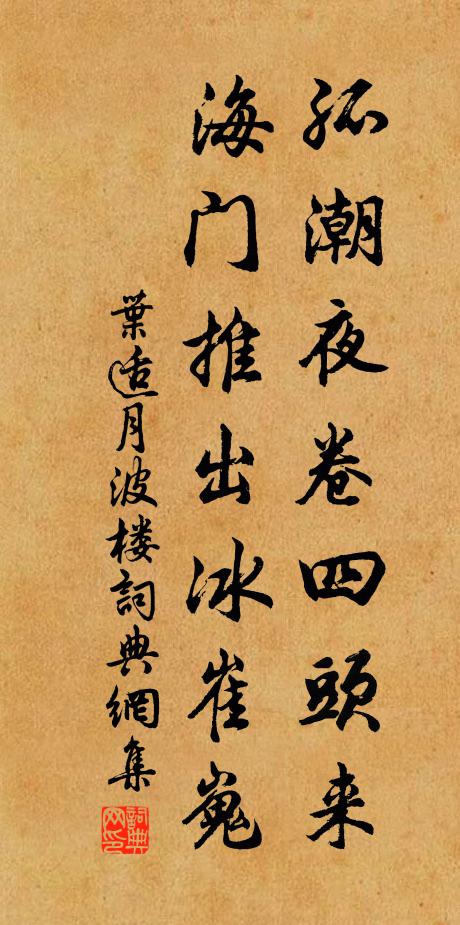 孤潮夜卷四頭来
海门推出冰崔嵬
葉适月波楼詞典網集
詞典网印